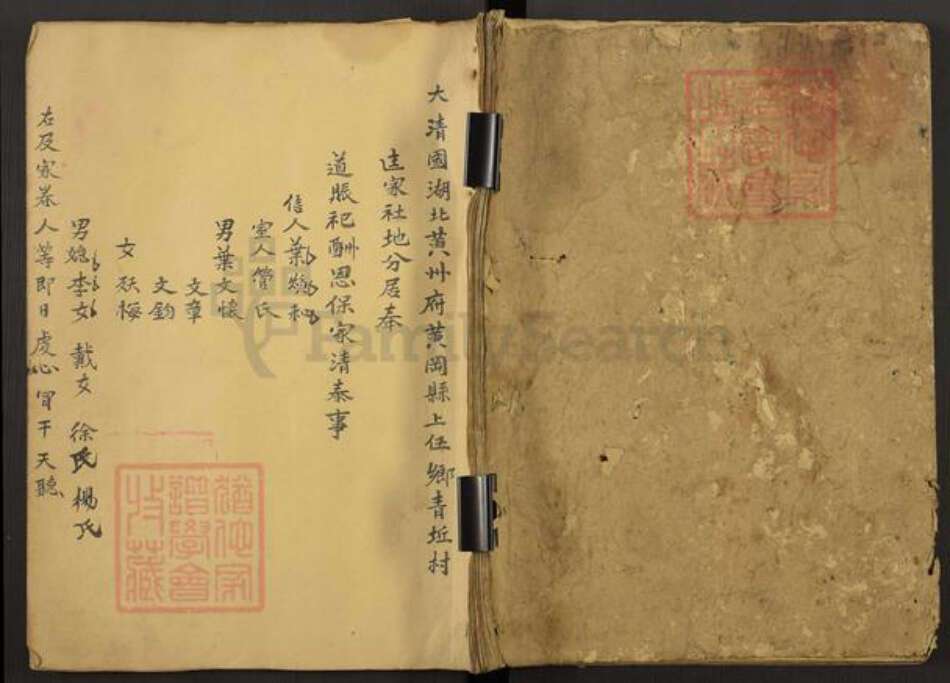 大清國湖北黃州府黃岡縣上伍鄉青坵村
家社地分居奉
道賬祀酬恩保家清泰事
信人葉煥和
室人管氏
男葉文懷
文章
文鈞
女 秋梅
男媳李女 戴女 徐氏 楊氏
右及家眷人等即日虔心冒干天聽
猶他家
譜學會
收藏
FamilySearch